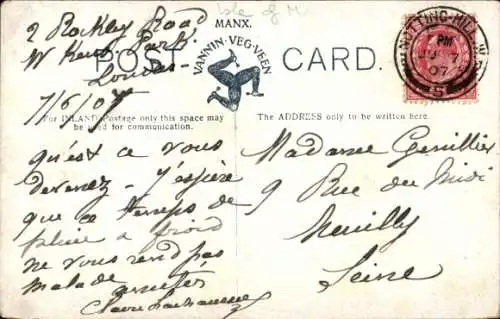 2 Rockley Road
W Kens. Park.
London
7/6/07
Isle of M
MANX.
VANNIN·VEG·VEEN
POST CARD.
NOTTING-HILL. W.
PM
JU 7
07
For INLAND Postage only this space may
be used for communication.
The ADDRESS only to be written here.
qu'est ce vous
devenez - J'espère
que ce temps de
pluie & froid
ne vous rend pas
malade
amitiés
Claire
Madame
9 Rue du Midi
Neuilly
Seine